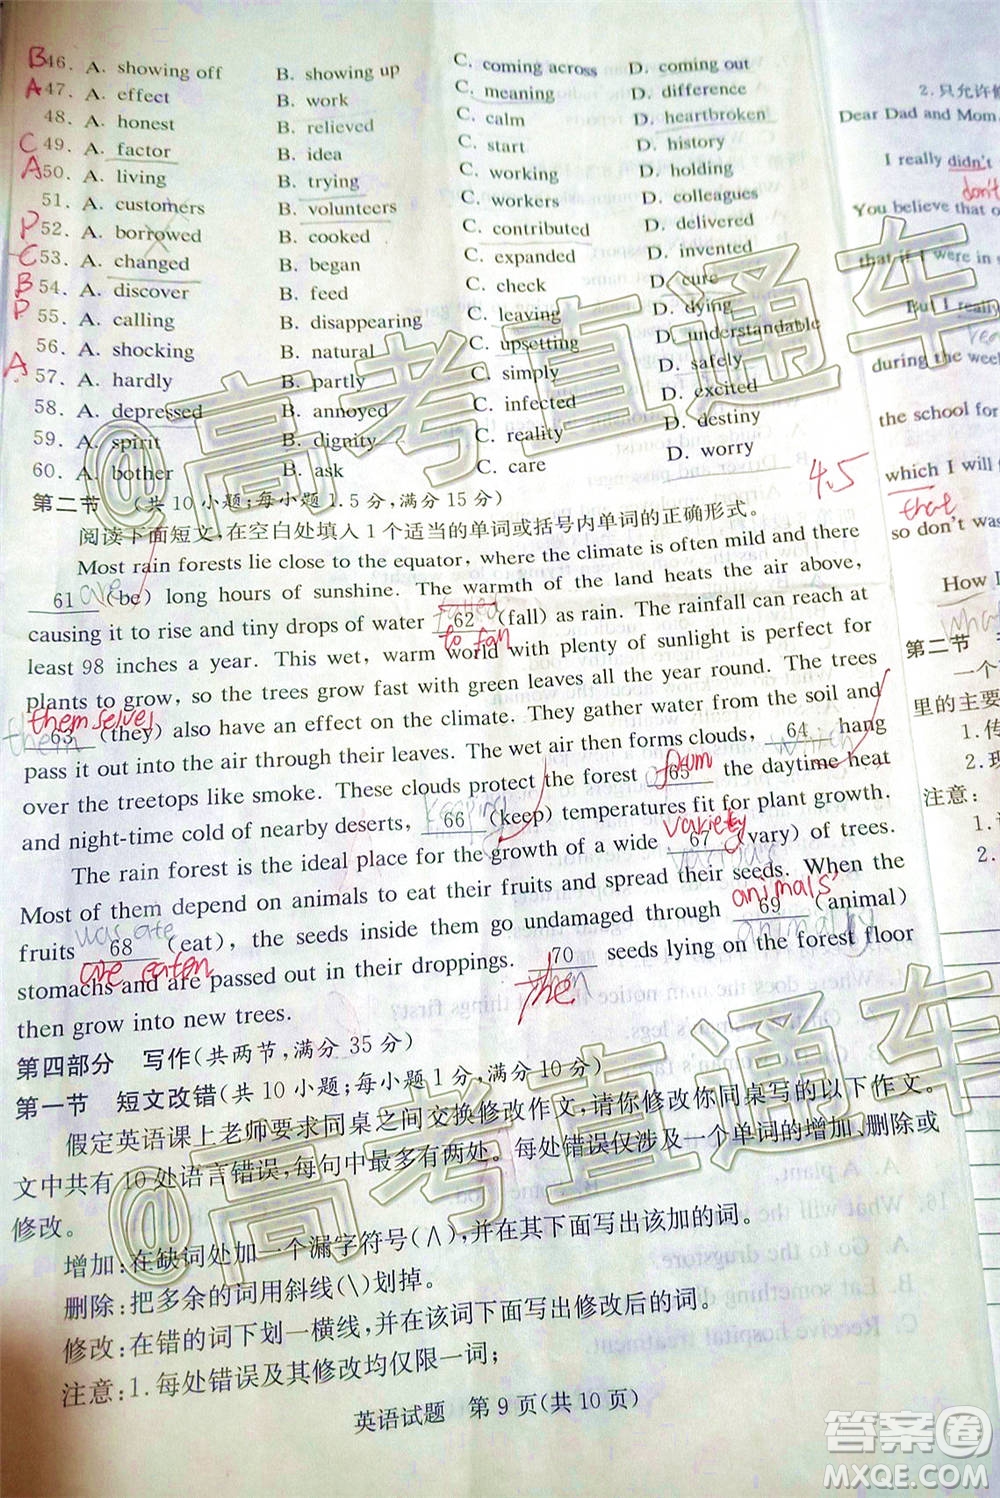 B 46. A. showing off B. showing up C. coming across D. coming out
A 47. A. effect B. work C. meaning D. difference
48. A. honest B. relieved C. calm D. heartbroken
C 49. A. factor B. idea C. start D. history
A 50. A. living B. trying C. working D. holding
51. A. customers B. volunteers C. workers D. colleagues
D 52. A. borrowed B. cooked C. contributed D. delivered
C 53. A. changed B. began C. expanded D. invented
B 54. A. discover B. feed C. check D. cure
D 55. A. calling B. disappearing C. leaving D. dying
56. A. shocking B. natural C. upsetting D. understandable
A 57. A. hardly B. partly C. simply D. safely
58. A. depressed B. annoyed C. infected D. excited
59. A. spirit B. dignity C. reality D. destiny
60. A. bother B. ask C. care D. worry
4.5
第二节 (共10小题;每小题1.5分,满分15分)
阅读下面短文,在空白处填入1个适当的单词或括号内单词的正确形式。
Most rain forests lie close to the equator, where the climate is often mild and there
61 are (be) long hours of sunshine. The warmth of the land heats the air above,
causing it to rise and tiny drops of water 62 (fall) as rain. The rainfall can reach at
to fall
least 98 inches a year. This wet, warm world with plenty of sunlight is perfect for
plants to grow, so the trees grow fast with green leaves all the year round. The trees
themselves
them 63 (they) also have an effect on the climate. They gather water from the soil and
pass it out into the air through their leaves. The wet air then forms clouds, 64 hang
which
over the treetops like smoke. These clouds protect the forest 65 the daytime heat
from
and night-time cold of nearby deserts, 66 (keep) temperatures fit for plant growth.
keeping
The rain forest is the ideal place for the growth of a wide 67 (vary) of trees.
variety
Most of them depend on animals to eat their fruits and spread their seeds. When the
fruits 68 (eat), the seeds inside them go undamaged through 69 (animal)
was ate
are eaten
animals'
stomachs and are passed out in their droppings. 70 seeds lying on the forest floor
the
then grow into new trees.
第四部分 写作(共两节,满分35分)
第一节 短文改错(共10小题;每小题1分,满分10分)
假定英语课上老师要求同桌之间交换修改作文,请你修改你同桌写的以下作文。
文中共有10处语言错误,每句中最多有两处。每处错误仅涉及一个单词的增加、删除或
修改。
增加:在缺词处加一个漏字符号(∧),并在其下面写出该加的词。
删除:把多余的词用斜线(\)划掉。
修改:在错的词下划一横线,并在该词下面写出修改后的词。
注意:1.每处错误及其修改均仅限一词;
英语试题 第9页(共10页)
2.只允许修
Dear Dad and Mom,
I really didn't
don't
You believe that o
that if I were in
But I really
during the wee
the school for
which I will
that
so don't was
How I
第二节
一个
里的主要
1.传
2.
注意:
1.
2.
@高考直通车
@高考直通车
答案圈
MXQE.COM